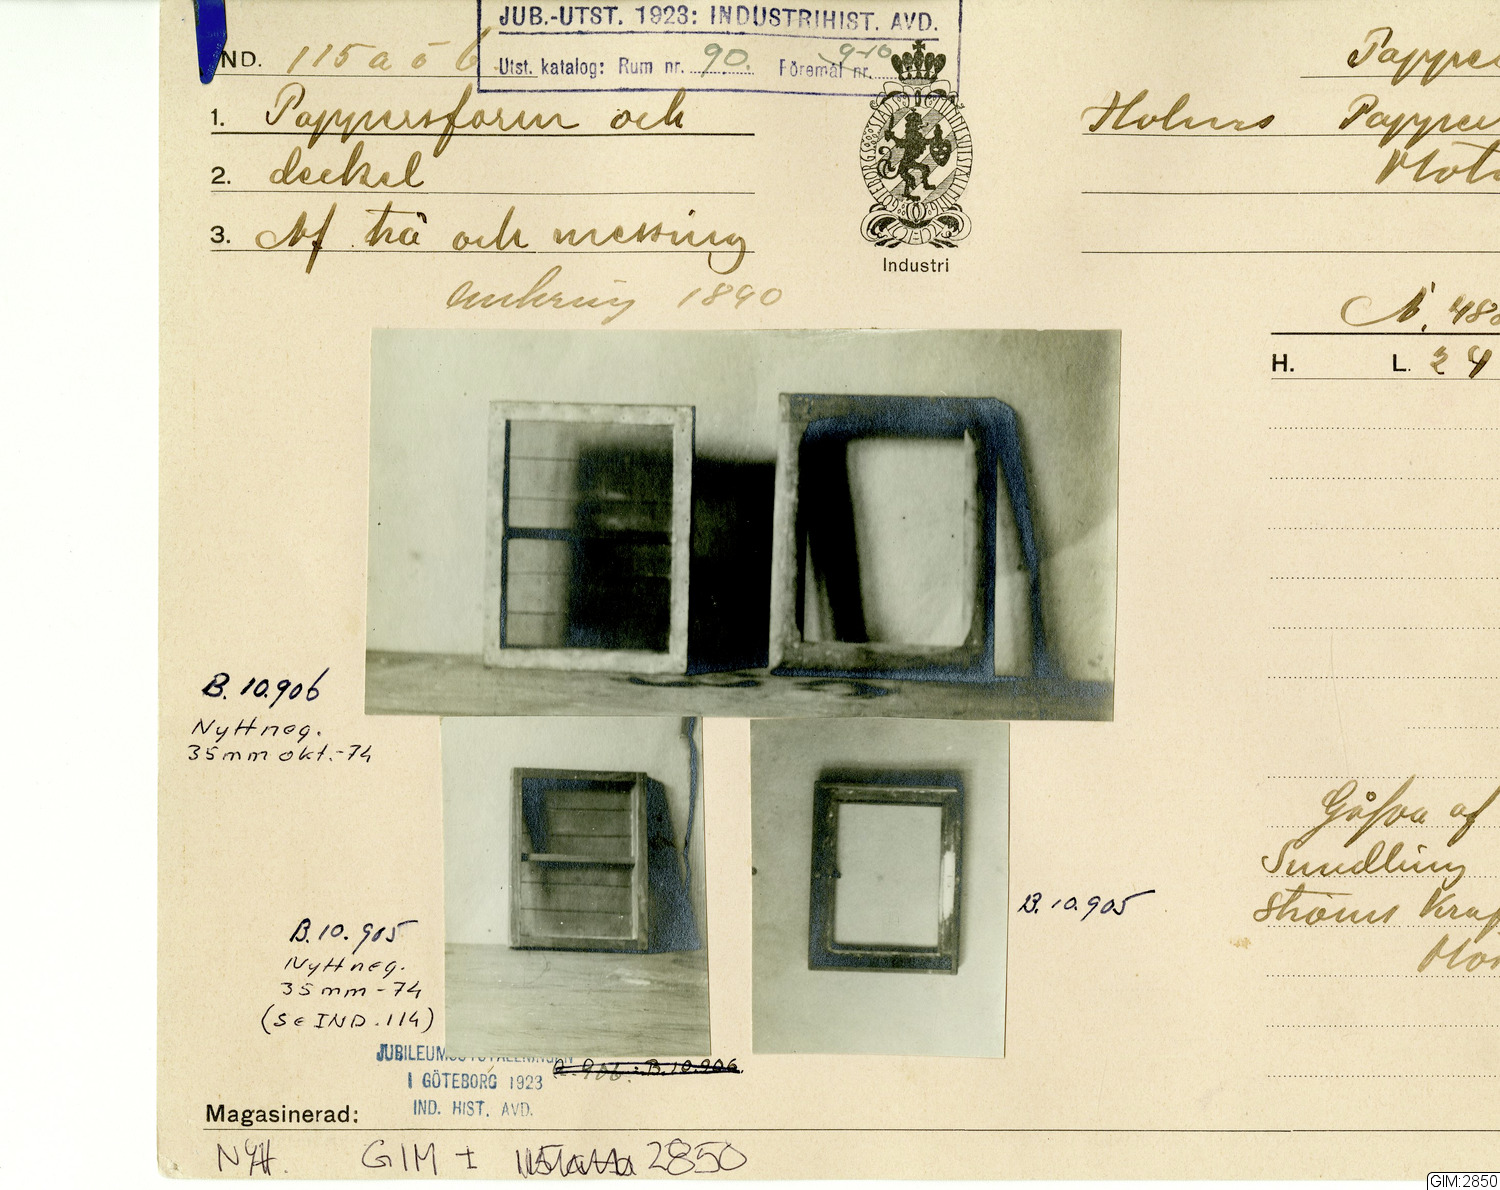 JUB.-UTST. 1923: INDUSTRIHIST. AVD.
Utst. katalog: Rum nr. 90. Föremål nr. 9-10
ND. 115 a o b
1. Pappersform och
2. deckel
3. Af trä och messing
omkring 1890
GÖTEBORGS STADS JUBILEUMSUTSTÄLLNING
Industri
Holmens
N. 48
H. L. 24
B. 10.906
Nytt neg.
35mm okt.-74
B. 10.905
Nytt neg.
35mm-74
(SE IND. 114)
B. 10.905
Gåfva af
Sundling
Ströms
JUBILEUMSUTSTÄLLNINGEN
I GÖTEBORG 1923
IND. HIST. AVD.
B.10.906.
Magasinerad:
Nytt. GIM I 2850
GIM:2850